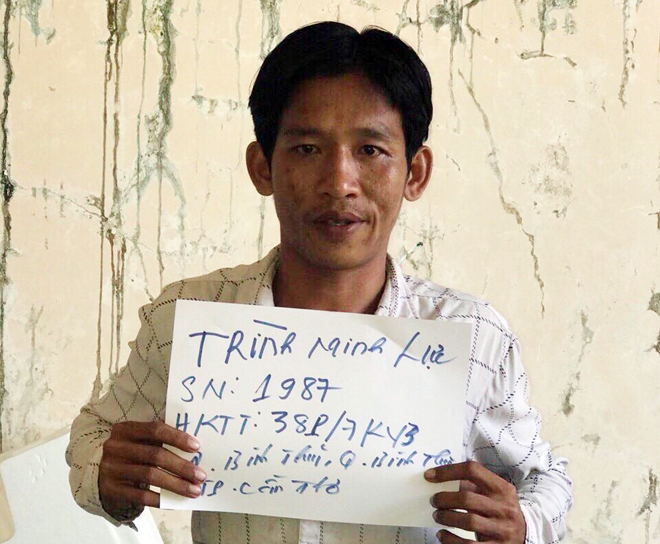 Trình Minh Lực
SN: 1987
HKTT: 38P/7KV3
P. Bình Thuỷ, Q. Bình Thuỷ
TP. Cần Thơ